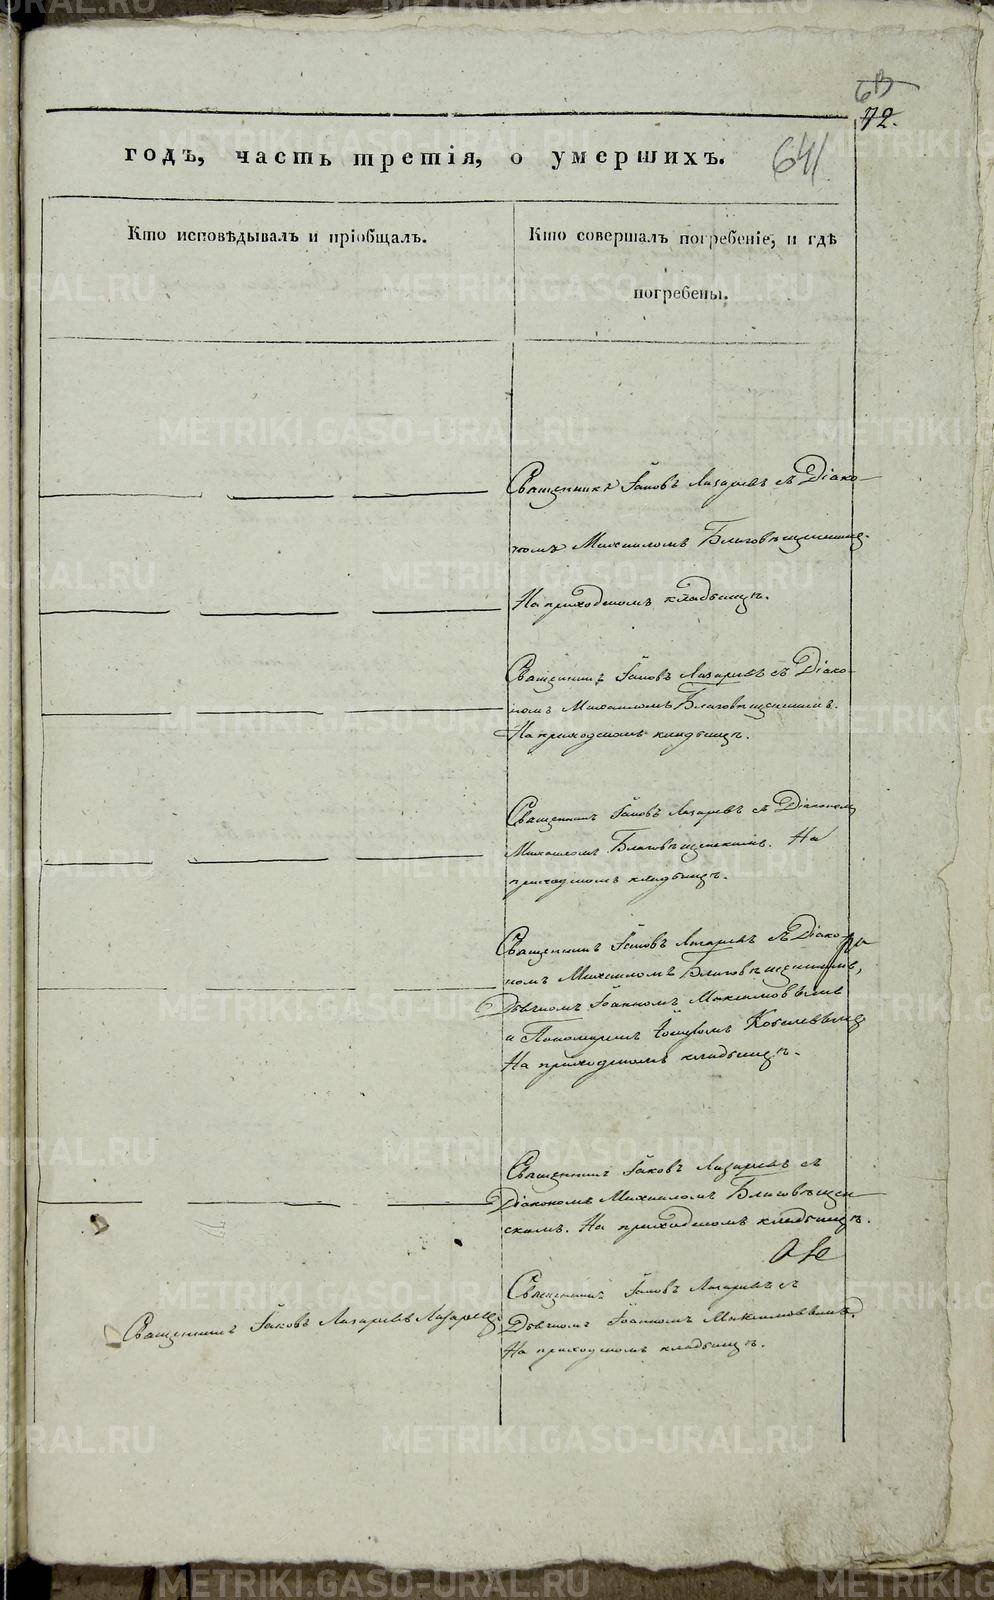 72.
641
годъ, часть третія, о умершихъ.
Кто исповѣдывалъ и пріобщалъ.
Кто совершалъ погребеніе, и гдѣ
погребены.
Священникъ Іаковъ Лазаревъ съ Діако-
номъ Михаиломъ Благовѣщенскимъ.
На приходскомъ кладбищѣ.
Священникъ Іаковъ Лазаревъ съ Діако-
номъ Михаиломъ Благовѣщенскимъ.
На приходскомъ кладбищѣ.
Священникъ Іаковъ Лазаревъ съ Діакономъ
Михаиломъ Благовѣщенскимъ. На
приходскомъ кладбищѣ.
Священникъ Іаковъ Лазаревъ съ Діако-
номъ Михаиломъ Благовѣщенскимъ,
Дьячкомъ Іоанномъ Максимовымъ
и Пономаремъ
На приходскомъ кладбищѣ.
Священникъ Іаковъ Лазаревъ съ
Діакономъ Михаиломъ Благовѣщен-
скимъ. На приходскомъ кладбищѣ.
Священникъ Іаковъ Лазаревъ Лазаревъ
Священникъ Іаковъ Лазаревъ съ
Дьячкомъ Іоанномъ Максимовымъ.
На приходскомъ кладбищѣ.
METRIKI.GASO-URAL.RU